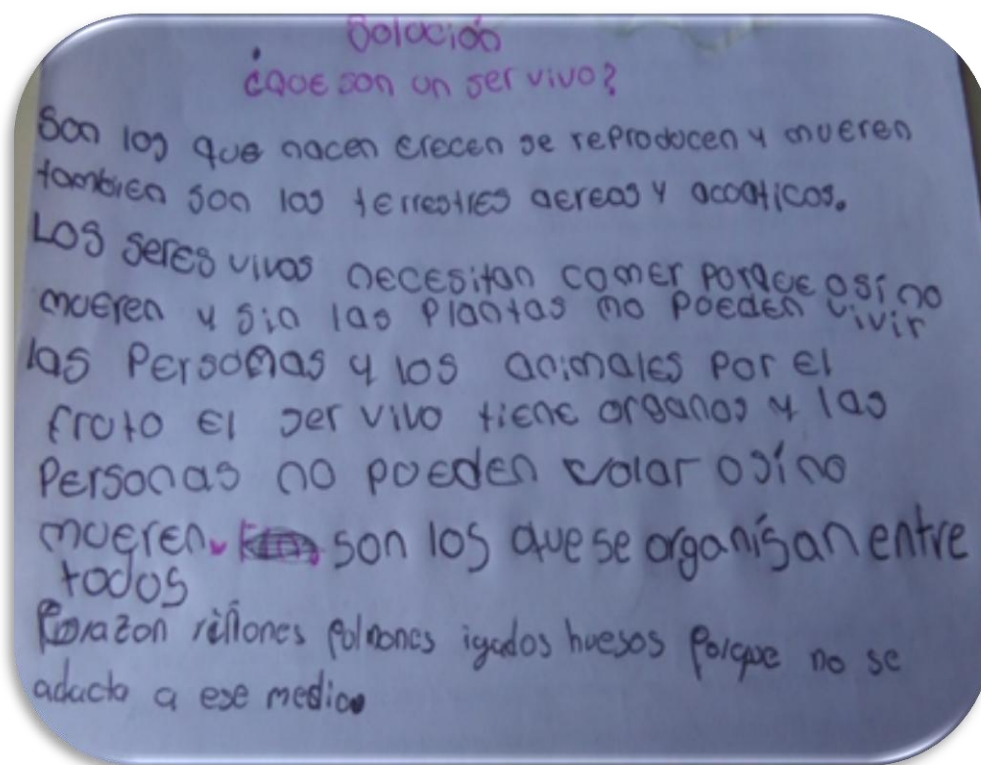 Solución
¿Que son un ser vivo?
Son los que nacen crecen se reproducen y mueren
tambien son los terrestres aereos y acoaticos.
Los seres vivos necesitan comer porque osí no
mueren y sin las plantas no pueden vivir
las personas y los animales por el
fruto El ser vivo tiene organos y las
personas no pueden volar osí no
mueren. son los que se organísan entre
todos
Corazon riñones polmones igados huesos porque no se
adacta a ese medio